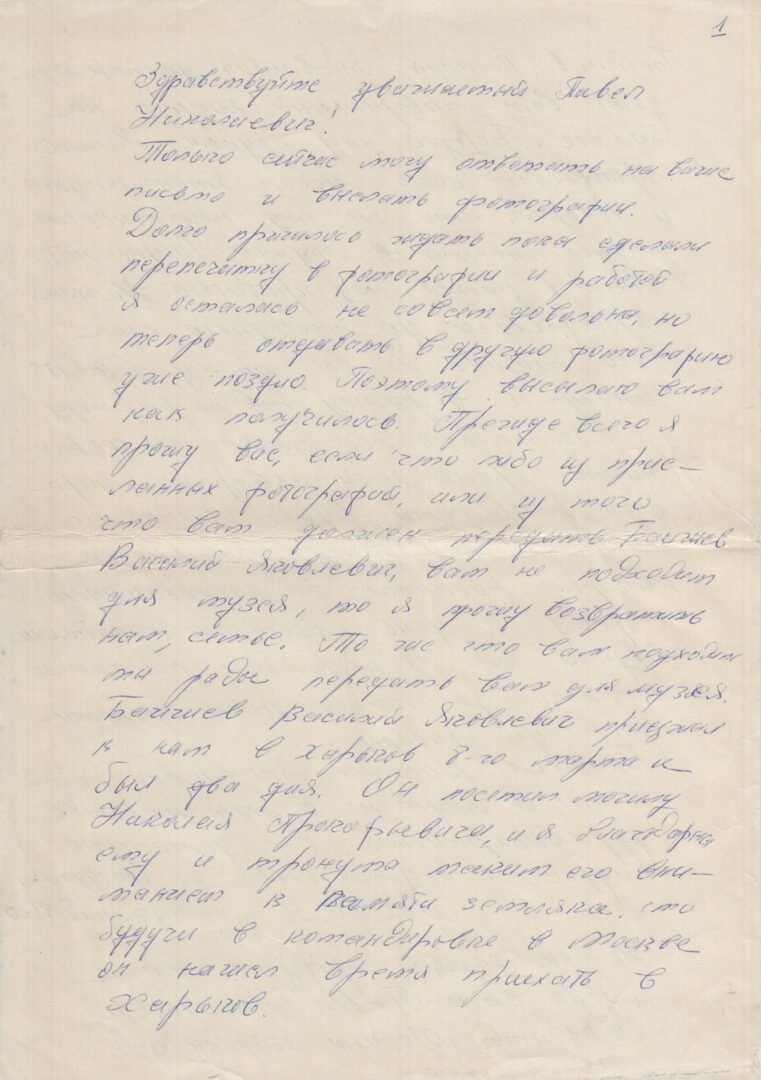 1
Здравствуйте уважаемый Павел
Николаевич!
Только сейчас могу ответить на ваше
письмо и выслать фотографии.
Долго пришлось ждать пока сделали
перепечатку в фотографии и работой
я осталась не совсем довольна, но
теперь отдавать в другую фотографию
уже поздно. Поэтому высылаю вам
как получилось. Прежде всего я
прошу вас, если что либо из прис-
ланных фотографий, или из того
что вам должен передать
Василий Яковлевич, вам не подходит
для музея, то я прошу возвратить
нам, семье. То же что вам подходит
мы рады передать вам для музея.
Василий Яковлевич приезжал
к нам в Харьков 8-го марта и
был два дня. Он посетил могилу
Николая Прокофьевича, и я благодарна
ему и тронута таким его вни-
манием к памяти земляка, что
будучи в командировке в Москве
он нашел время приехать в
Харьков.